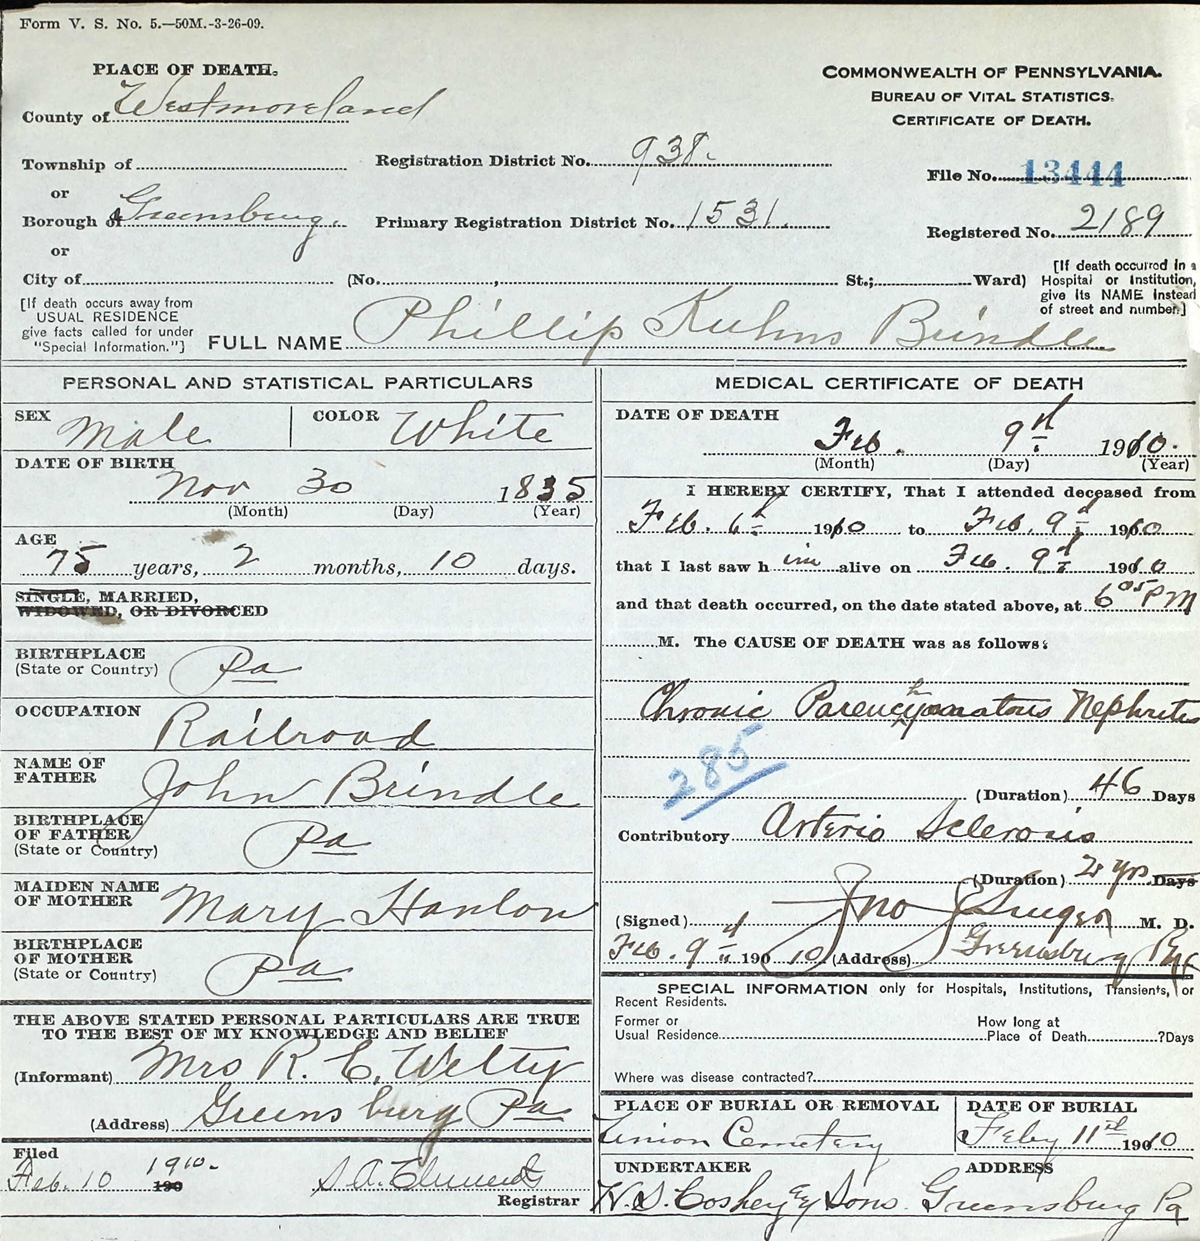 Form V. S. No. 5.—50M.-3-26-09.
PLACE OF DEATH.
County of Westmoreland
Township of
or
Borough of Greensburg.
or
City of
(No. , St.; Ward)
[If death occurs away from
USUAL RESIDENCE
give facts called for under
"Special Information."]
Registration District No. 938.
Primary Registration District No. 1531.
COMMONWEALTH OF PENNSYLVANIA.
BUREAU OF VITAL STATISTICS.
CERTIFICATE OF DEATH.
File No. 13444
Registered No. 2189
[If death occurred in a
Hospital or Institution,
give its NAME instead
of street and number.]
FULL NAME Phillip Kuhns Brindle
PERSONAL AND STATISTICAL PARTICULARS
SEX Male COLOR White
DATE OF BIRTH
Nov 30 1835
(Month) (Day) (Year)
AGE
75 years, 2 months, 10 days.
SINGLE, MARRIED,
WIDOWED, OR DIVORCED
BIRTHPLACE
(State or Country) Pa
OCCUPATION
Railroad
NAME OF
FATHER John Brindle
BIRTHPLACE
OF FATHER
(State or Country) Pa
MAIDEN NAME
OF MOTHER Mary Hanlon
BIRTHPLACE
OF MOTHER
(State or Country) Pa
THE ABOVE STATED PERSONAL PARTICULARS ARE TRUE
TO THE BEST OF MY KNOWLEDGE AND BELIEF
(Informant) Mrs R. C. Welty
(Address) Greensburg Pa
Filed
Feb. 10 1910. 190
Registrar
MEDICAL CERTIFICATE OF DEATH
DATE OF DEATH
Feb. 9th 1910.
(Month) (Day) (Year)
I HEREBY CERTIFY, That I attended deceased from
Feb. 6th 1910 to Feb. 9th 1910
that I last saw him alive on Feb. 9th 1910
and that death occurred, on the date stated above, at 6 05 PM
M. The CAUSE OF DEATH was as follows:
Chronic Parenchymatous Nephritis
285
(Duration) 46 Days
Contributory Arterio Sclerosis
(Duration) 2 yrs. Days
(Signed) Jno M. D.
Feb. 9th 1910 (Address) Greensburg Pa
SPECIAL INFORMATION only for Hospitals, Institutions, Transients, or
Recent Residents.
Former or
Usual Residence
How long at
Place of Death ?Days
Where was disease contracted?
PLACE OF BURIAL OR REMOVAL
Union Cemetery
DATE OF BURIAL
Feby 11th 1910
UNDERTAKER ADDRESS
& Sons. Greensburg Pa